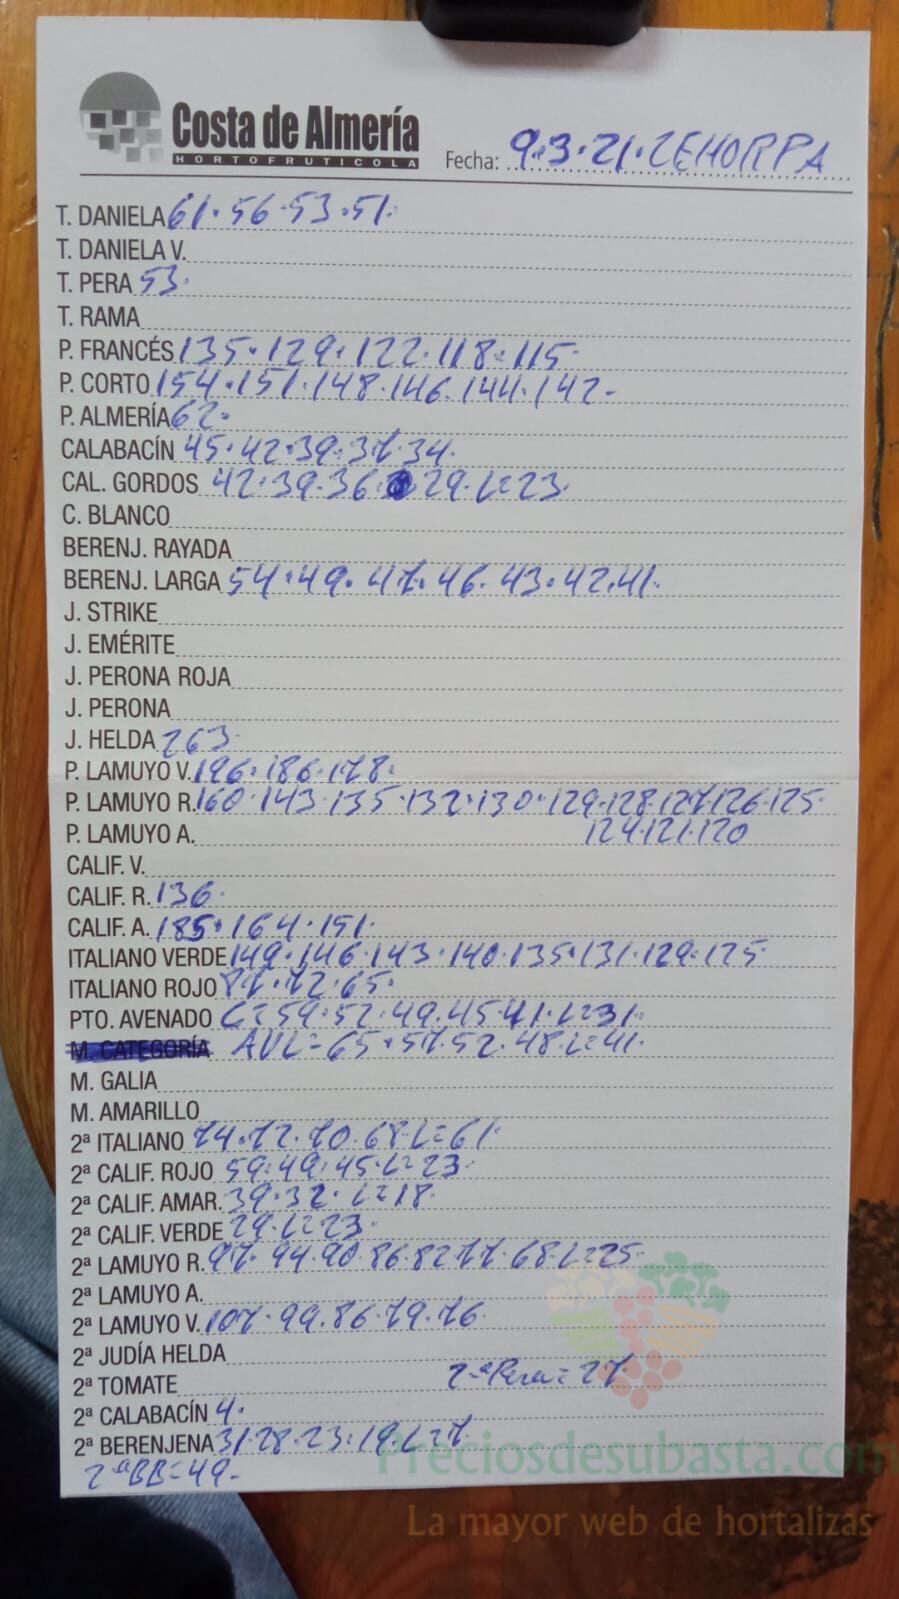 Costa de Almería
HORTOFRUTICOLA
Fecha: 9.3.21. ZEHORPA
T. DANIELA 61.56.53.51.
T. DANIELA V.
T. PERA 53.
T. RAMA
P. FRANCÉS 135.129.122.118.115.
P. CORTO 154.151.148.146.144.142.
P. ALMERÍA 62.
CALABACÍN 45.42.39.37.34.
CAL. GORDOS 42.39.36. 29.L=23.
C. BLANCO
BERENJ. RAYADA
BERENJ. LARGA 54.49.47.46.43.42.41.
J. STRIKE
J. EMÉRITE
J. PERONA ROJA
J. PERONA
J. HELDA 263.
P. LAMUYO V. 196.186.178.
P. LAMUYO R. 160.143.135.132.130.129.128.127.126.125
P. LAMUYO A. 124.121.120
CALIF. V.
CALIF. R. 136.
CALIF. A. 185.164.151.
ITALIANO VERDE 149.146.143.140.135.131.129.125.
ITALIANO ROJO 87.72.65.
PTO. AVENADO C=59.52.49.45.41.L=31.
M. CATEGORÍA AVL=65.57.52.48.L=41.
M. GALIA
M. AMARILLO
2ª ITALIANO 74.72.70.68.L=61.
2ª CALIF. ROJO 59.49.45.L=23.
2ª CALIF. AMAR. 39.32.L=18.
2ª CALIF. VERDE 29.L=23.
2ª LAMUYO R. 97.94.90.86.82.77.68.L=25.
2ª LAMUYO A.
2ª LAMUYO V. 107.99.86.79.76
2ª JUDÍA HELDA
2ª TOMATE 2ªPera=27
2ª CALABACÍN 4.
2ª BERENJENA 31.28.23.19.L=7.
2ªBB=49.
Preciosdesubasta.com
La mayor web de hortalizas